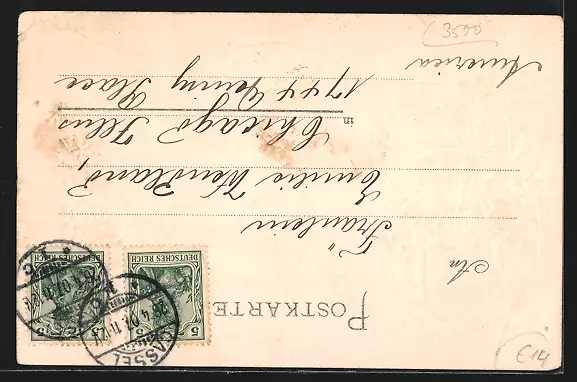 POSTKARTE
An
Fräulein
Emilie Wendland,
in Chicago Illus
1744 Deming Place
America
DEUTSCHES REICH
5 5
DEUTSCHES REICH
5 5
CASSEL
3500
€14